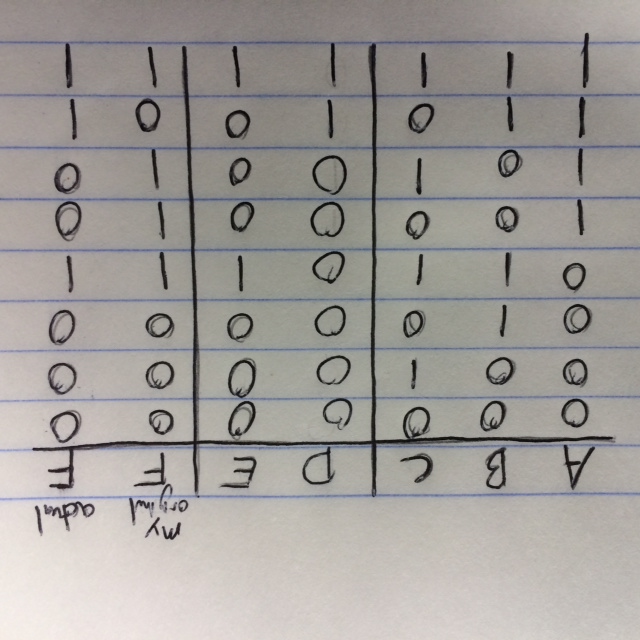 my
original actual
A B C D E F F
0 0 0 0 0 0 0
0 0 1 0 0 0 0
0 1 0 0 0 0 0
0 1 1 0 1 1 1
1 0 0 0 0 1 0
1 0 1 0 0 1 0
1 1 0 1 0 0 1
1 1 1 1 1 1 1